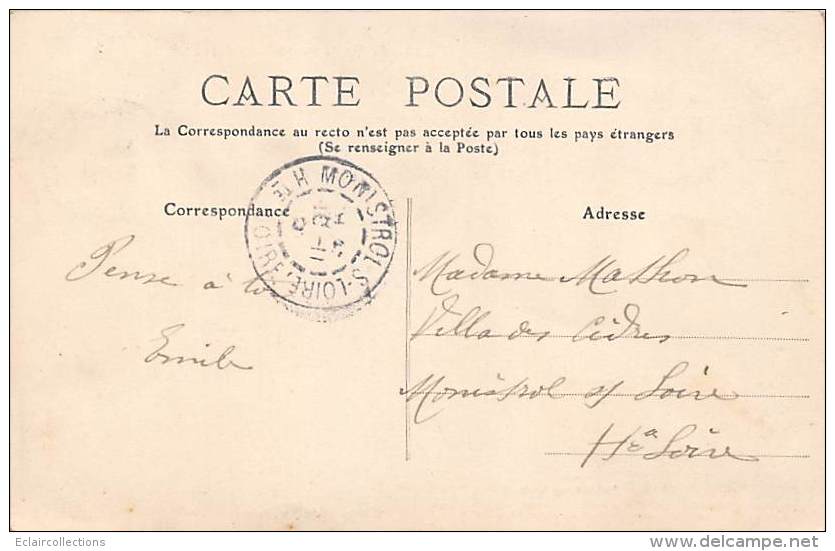 CARTE POSTALE
La Correspondance au recto n'est pas acceptée par tous les pays étrangers
(Se renseigner à la Poste)
Correspondance
Adresse
MONISTROL-S-LOIRE HTE LOIRE
Pense à to
Emile
Madame Mathon
Villa des Cèdres
Monistrol s/ Loire
Hte Loire
Eclaircollections
delcampe.net